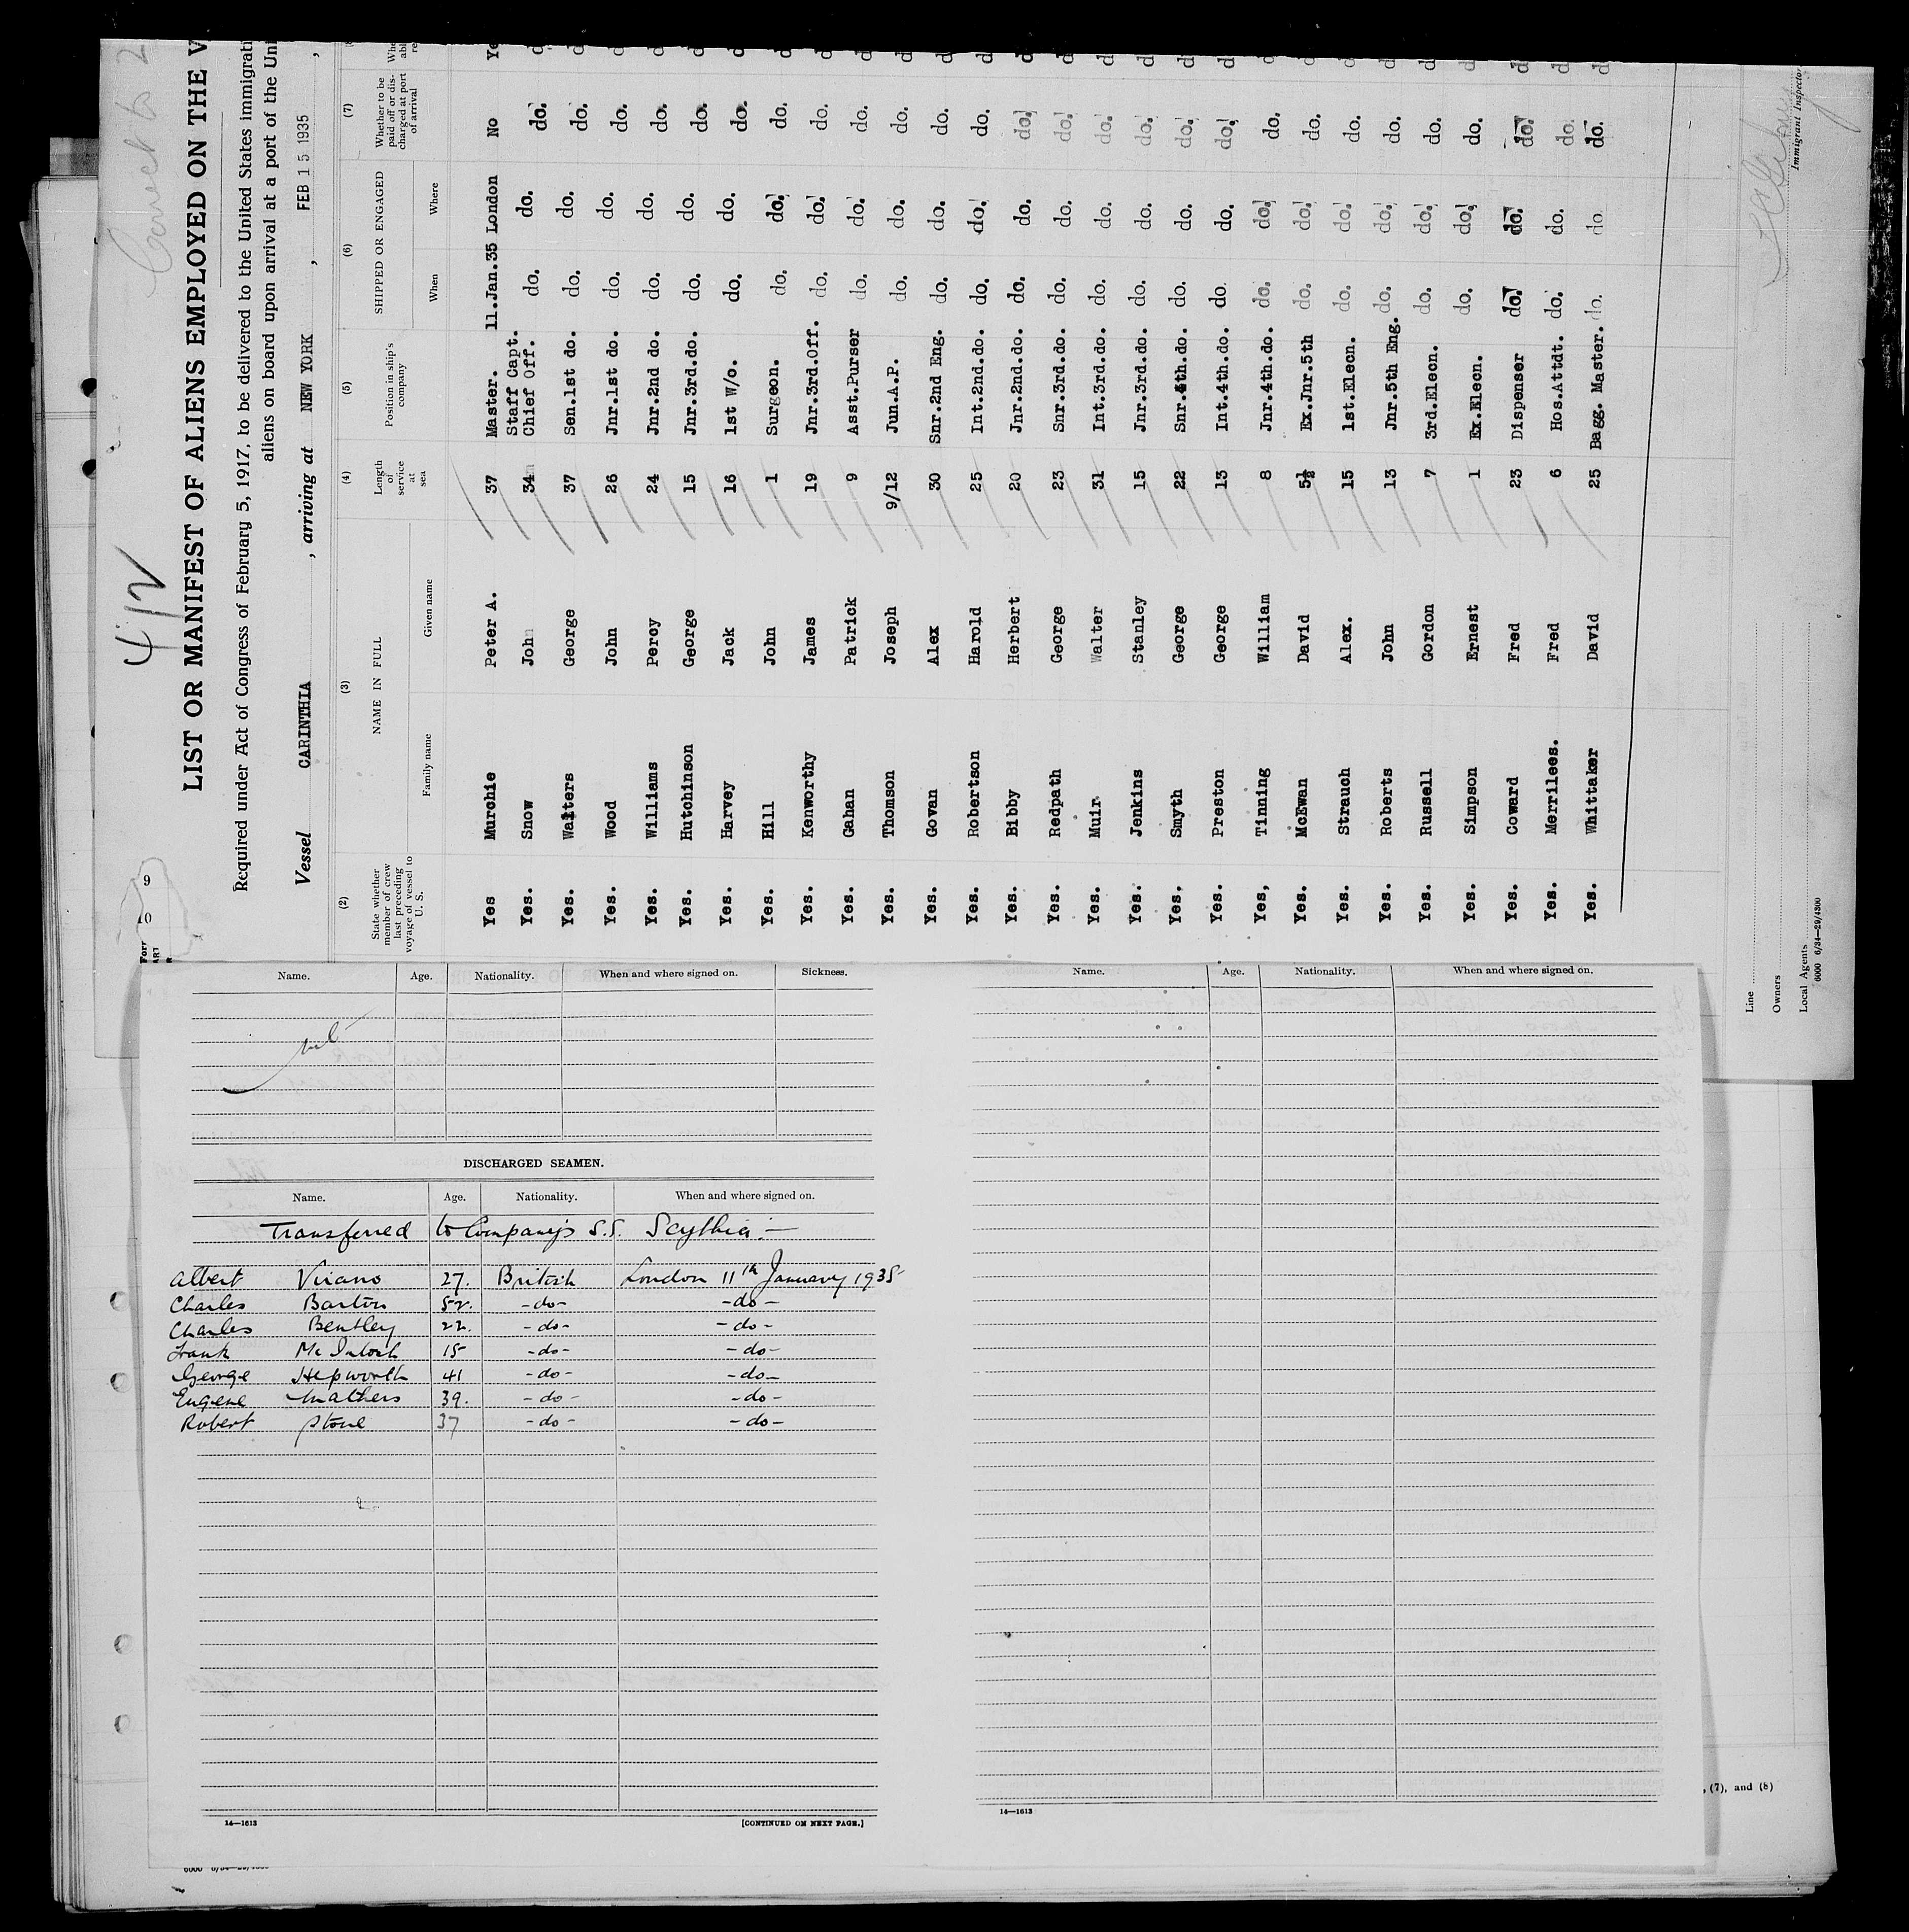 412
LIST OR MANIFEST OF ALIENS EMPLOYED ON THE V
Required under Act of Congress of February 5, 1917, to be delivered to the United States immigrati
aliens on board upon arrival at a port of the Uni
Vessel CARINTHIA , arriving at NEW YORK , FEB 15 1935 ,
(2) (3) (4) (5) (6) (7)
State whether member of crew last preceding voyage of vessel to U. S. NAME IN FULL Length of service at sea Position in ship's company SHIPPED OR ENGAGED Whether to be paid off or discharged at port of arrival
Family name Given name When Where
Yes Murchie Peter A. 37 Master. 11.Jan.35 London No Ye
Yes. Snow John 34 Staff Capt. Chief Off. do. do. do. d
Yes. Walters George 37 Sen.1st do. do. do. do. d
Yes. Wood John 26 Jnr.1st do. do. do. do. d
Yes. Williams Percy 24 Jnr.2nd do. do. do. do. d
Yes. Hutchinson George 15 Jnr.3rd.do. do. do. do. d
Yes. Harvey Jack 16 1st W/o. do. do. do. d
Yes. Hill John 1 Surgeon. do. do. do. d
Yes. Kenworthy James 19 Jnr.3rd.Off. do. do. do. d
Yes. Gahan Patrick 9 Asst.Purser do. do. do. d
Yes. Thomson Joseph 9/12 Jun.A.P. do. do. do. d
Yes. Govan Alex 30 Snr.2nd Eng. do. do. do. d
Yes. Robertson Harold 25 Int.2nd.do. do. do. do. d
Yes. Bibby Herbert 20 Jnr.2nd.do. do. do. do. d
Yes. Redpath George 23 Snr.3rd.do. do. do. do. d
Yes. Muir Walter 31 Int.3rd.do. do. do. do. d
Yes. Jenkins Stanley 15 Jnr.3rd.do. do. do. do. d
Yes. Smyth George 22 Snr.4th.do. do. do. do. d
Yes. Preston George 13 Int.4th.do. do. do. do. d
Yes, Tinning William 8 Jnr.4th.do. do. do. do. d
Yes. McEwan David 5½ Ex.Jnr.5th do. do. do. d
Yes. Strauch Alex. 15 1st.Elecn. do. do. do. d
Yes. Roberts John 13 Jnr.5th Eng. do. do. do. d
Yes. Russell Gordon 7 3rd.Elecn. do. do. do. d
Yes. Simpson Ernest 1 Ex.Elecn. do. do. do. d
Yes. Coward Fred 23 Dispenser do. do. do. d
Yes. Merrilees. Fred 6 Hos.Attdt. do. do. do. d
Yes. Whittaker David 25 Bagg. Master. do. do do. d
Line
Owners
Local Agents
6000 6/34—29/4300
Immigrant Inspector
Name. Age. Nationality. When and where signed on. Sickness.
nil
DISCHARGED SEAMEN.
Name. Age. Nationality. When and where signed on.
Transferred to Company's S.S. Scythia:—
Albert Virano 27. British London 11th January 1935
Charles Barton 52. -do- -do-
Charles Bentley 22. -do- -do-
Frank McIntosh 15 -do- -do-
George Hepworth 41 -do- -do-
Eugene Mathers 39. -do- -do-
Robert Stone 37 -do- -do-
14—1613 [CONTINUED ON NEXT PAGE.]
Name. Age. Nationality. When and where signed on.
14—1613
, (7), and (8)